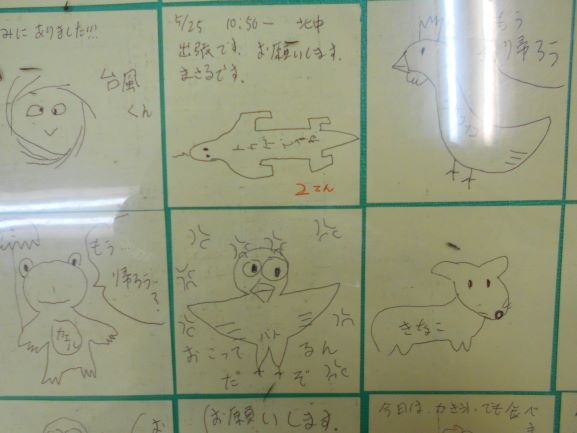 みに ありました!!!
台風
くん
5/25 10:50ー 北中
出張です。お願いします。
まさるです。
2てん
もう
帰ろう
もう…
帰ろう…
?
カエル
ハト
おこって るん
だ ぞ
きなこ
お願いします。
今日は、かき氷でも食べ